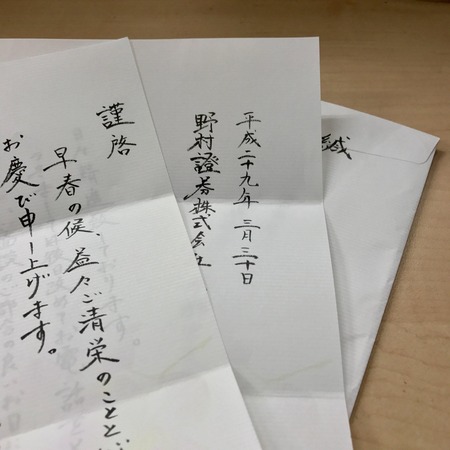 謹啓
早春の候、益々ご清栄のことと
お慶び申し上げます。
平成二十九年 三月三十日
野村證券株式会社